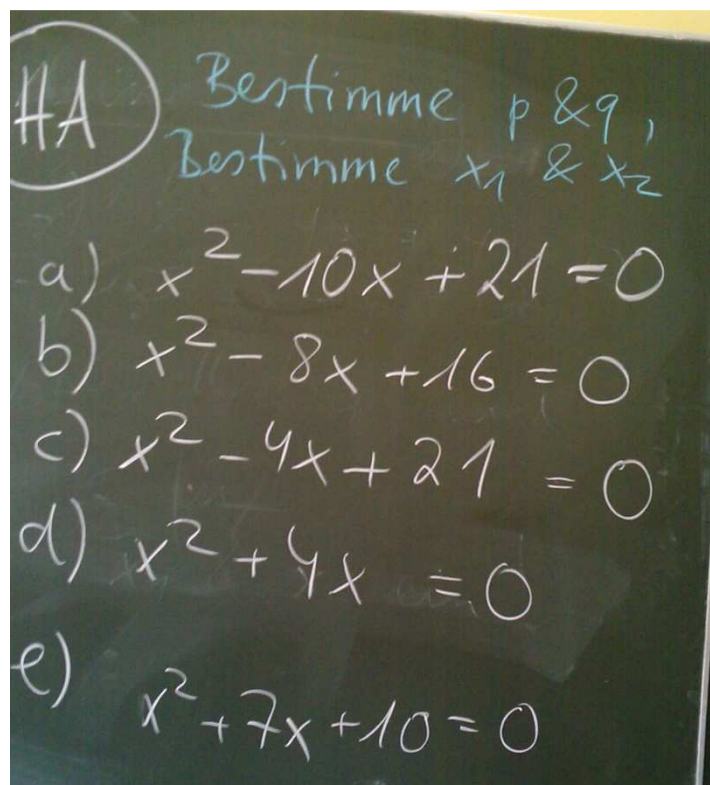 HA
Bestimme p & q,
Bestimme x₁ & x₂
a) x² - 10x + 21 = 0
b) x² - 8x + 16 = 0
c) x² - 4x + 21 = 0
d) x² + 4x = 0
e) x² + 7x + 10 = 0